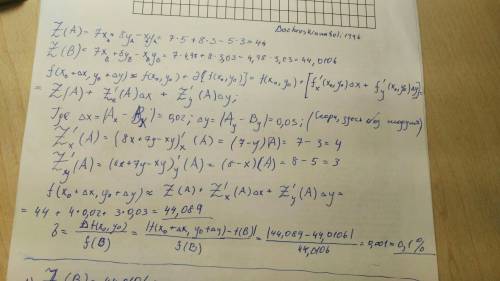 Dachovskianatoli.1996
Z(A) = 7x_A + 8y_A - x_A y_A = 7·5 + 8·3 - 5·3 = 44
Z(B) = 7x_B + 8y_B - x_B y_B = 7·4,98 + 8·3,03 - 4,98·3,03 = 44,0106
f(x₀+Δx, y₀+Δy) ≈ f(x₀,y₀) + d[f(x₀,y₀)] = f(x₀,y₀) + [f'ₓ(x₀,y₀)Δx + f'y(x₀,y₀)Δy] =
= Z(A) + Z'ₓ(A)Δx + Z'y(A)Δy;
Где Δx = |Aₓ - Bₓ| = 0,02; Δy = |Ay - By| = 0,03; (Скорее, здесь без модуля)
Z'ₓ(A) = (8x+7y-xy)'ₓ(A) = (7-y)(A) = 7-3 = 4
Z'y(A) = (8x+7y-xy)'y(A) = (8-x)(A) = 8-5 = 3
f(x₀+Δx, y₀+Δy) ≈ Z(A) + Z'ₓ(A)Δx + Z'y(A)Δy =
= 44 + 4·0,02 + 3·0,03 = 44,089
δ = Δf(x₀,y₀)/f(B) = |f(x₀+Δx, y₀+Δy) - f(B)|/f(B) = |44,089 - 44,0106|/44,0106 = 0,001 = 0,1%